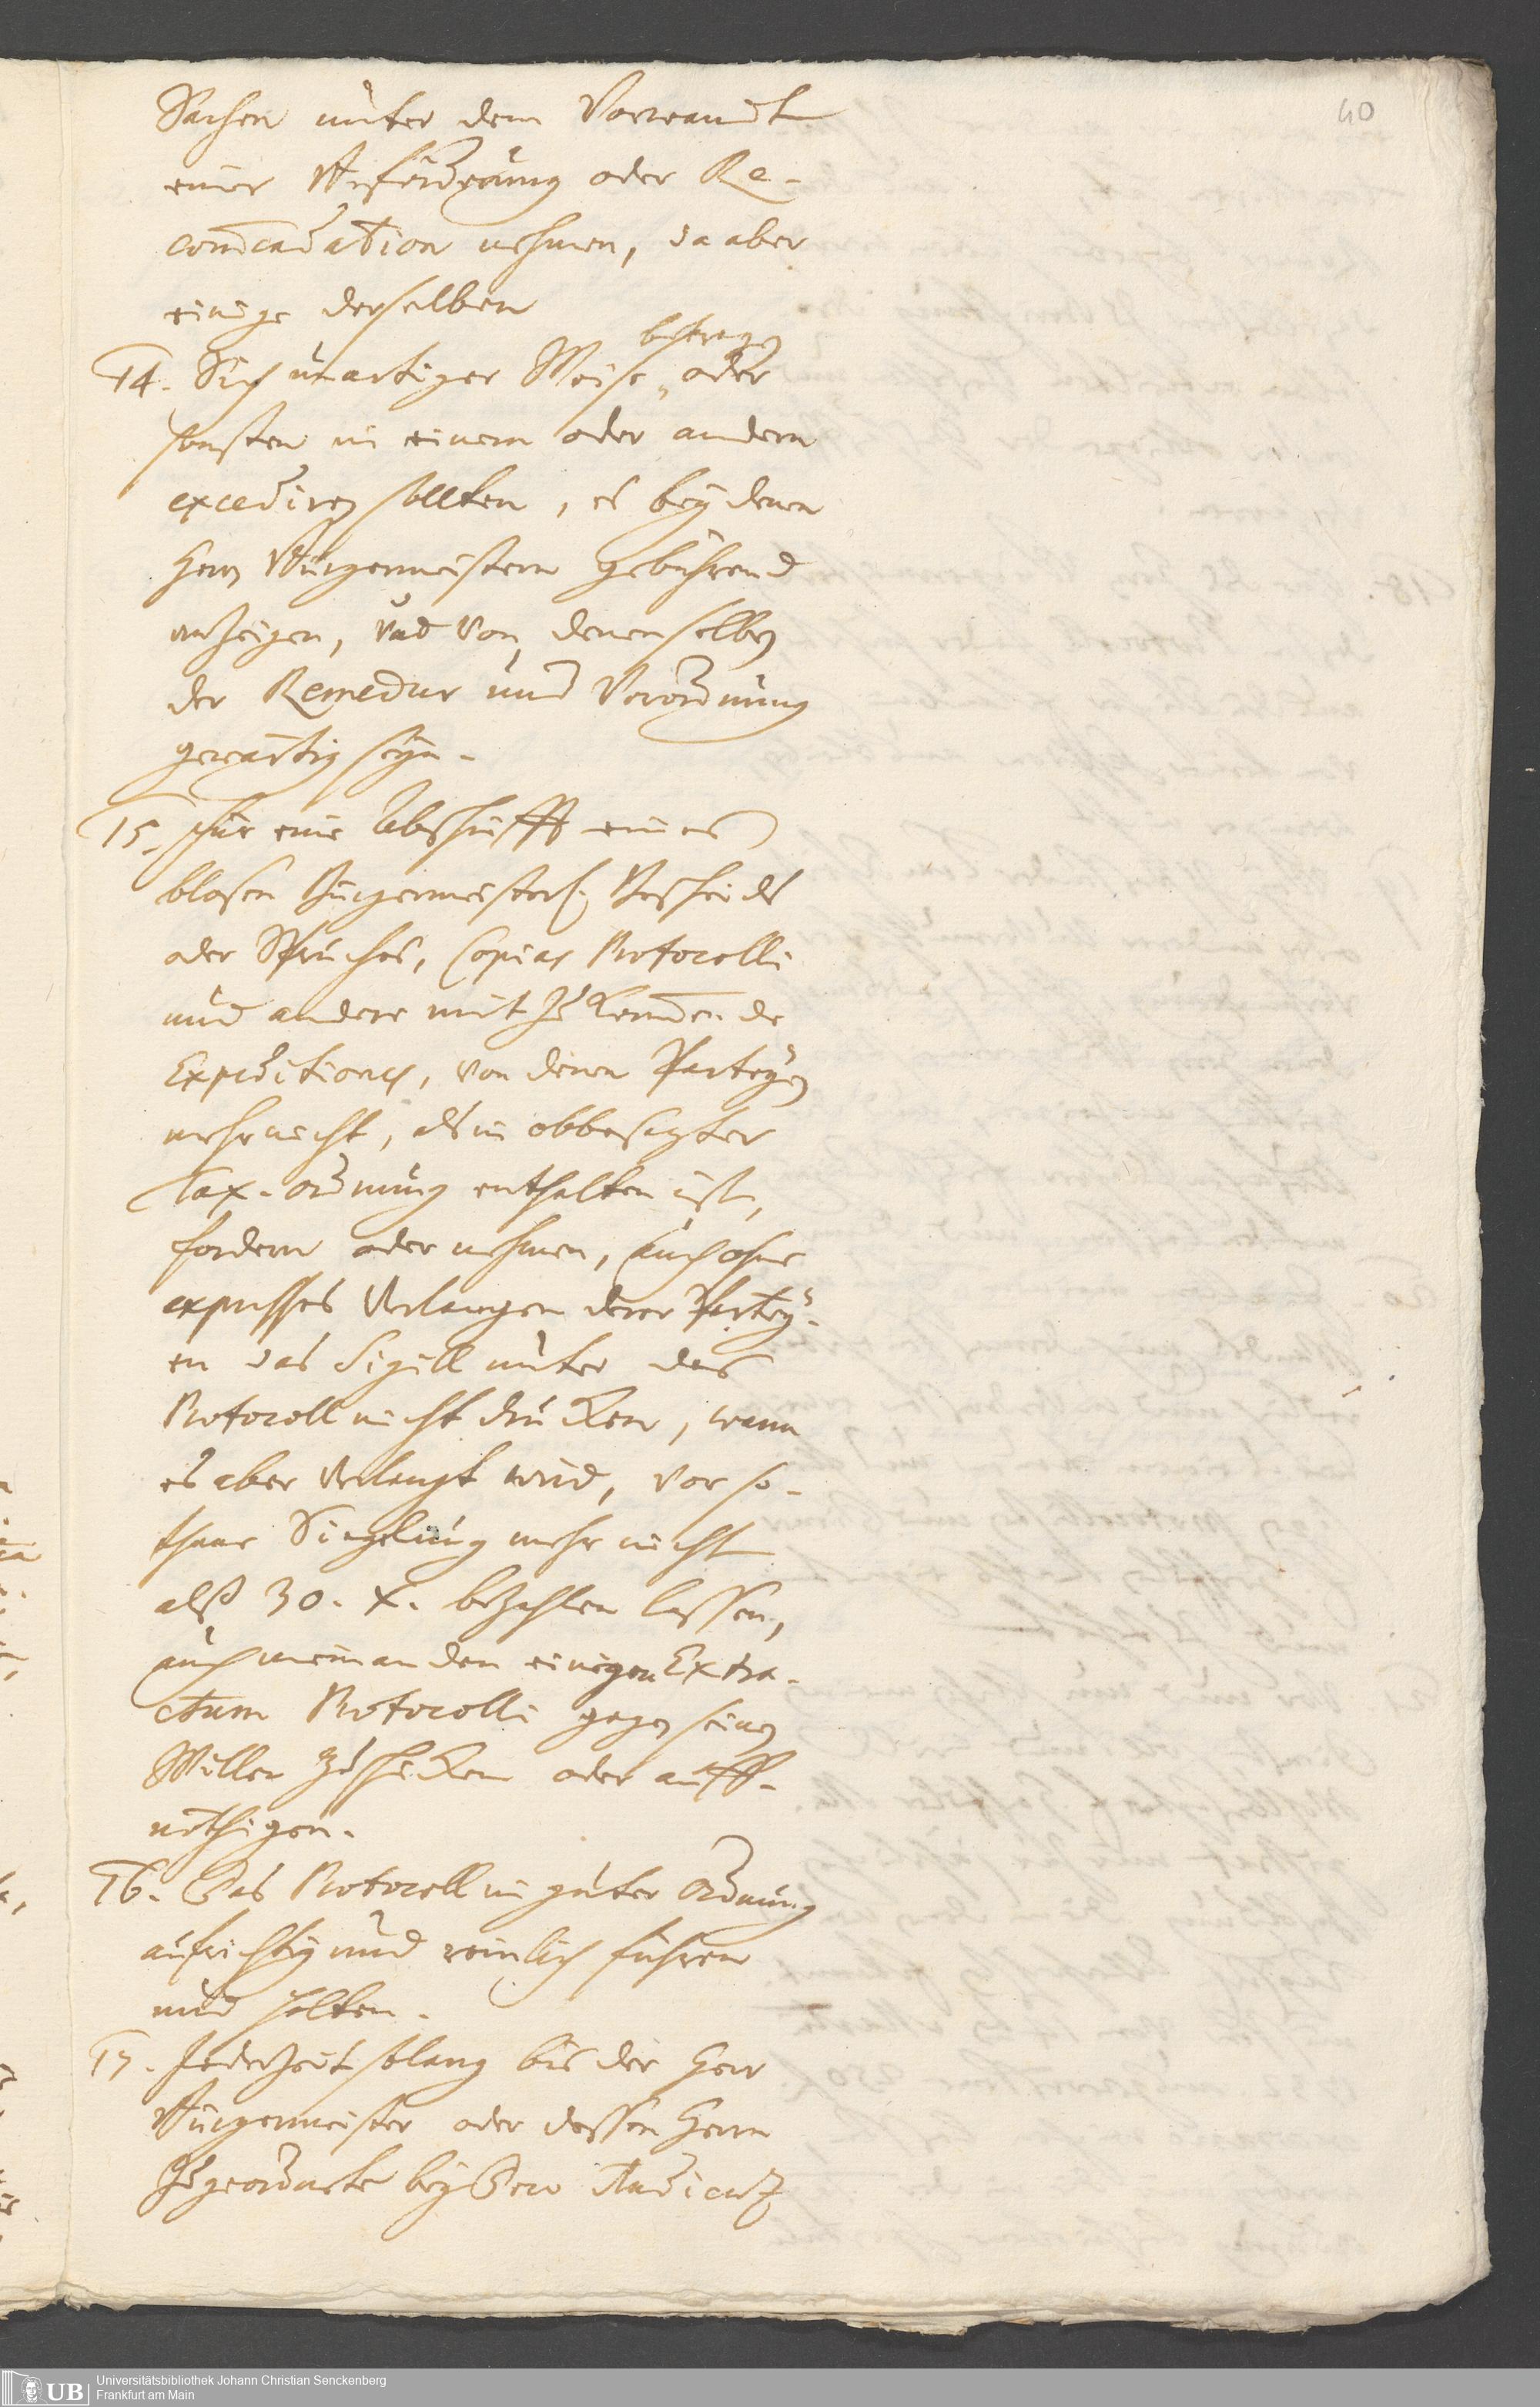 40
Sachen unter dem Vorwandt
einer Beförderung oder Re-
com̄endation nehmen, da aber
einige derselben
14. Sich unartiger Weise betragen oder
sonsten in einem oder andern
excediren sollten, es bey denen
Herrn Bürgermeistern gebührend
anzeigen, und von denenselben
der Remedur und Verordnung
gewärtig seyn.
15. Für eine Abschrifft eines
blosen Bürgermeisterl. Bescheids
oder Spruches, Copias Protocolli
und andere mit zukom̄ende
Expeditiones, von denen Partheyen
mehr nicht, als in obbesagter
Tax-Ordnung enthalten ist,
fordern oder nehmen, auch ohne
expresses Verlangen derer Partey-
en das Sigill unter das
Protocoll nicht drucken, wann
es aber verlangt wird, vor so-
thane Siegelung mehr nicht
alß 30. x. bezahlen lassen,
auch niemanden einigen Extra-
ctum Protocolli gegen seinen
Willen zuschicken oder auff-
nöthigen.
16. Das Protocoll in guter Ordnung
aufrichtig und reinlich führen
und halten.
17. Jederzeit solang bis der Herr
Bürgermeister oder dessen Herrn
Zugeordnete bey Dero Audientz
UB
Universitätsbibliothek Johann Christian Senckenberg
Frankfurt am Main